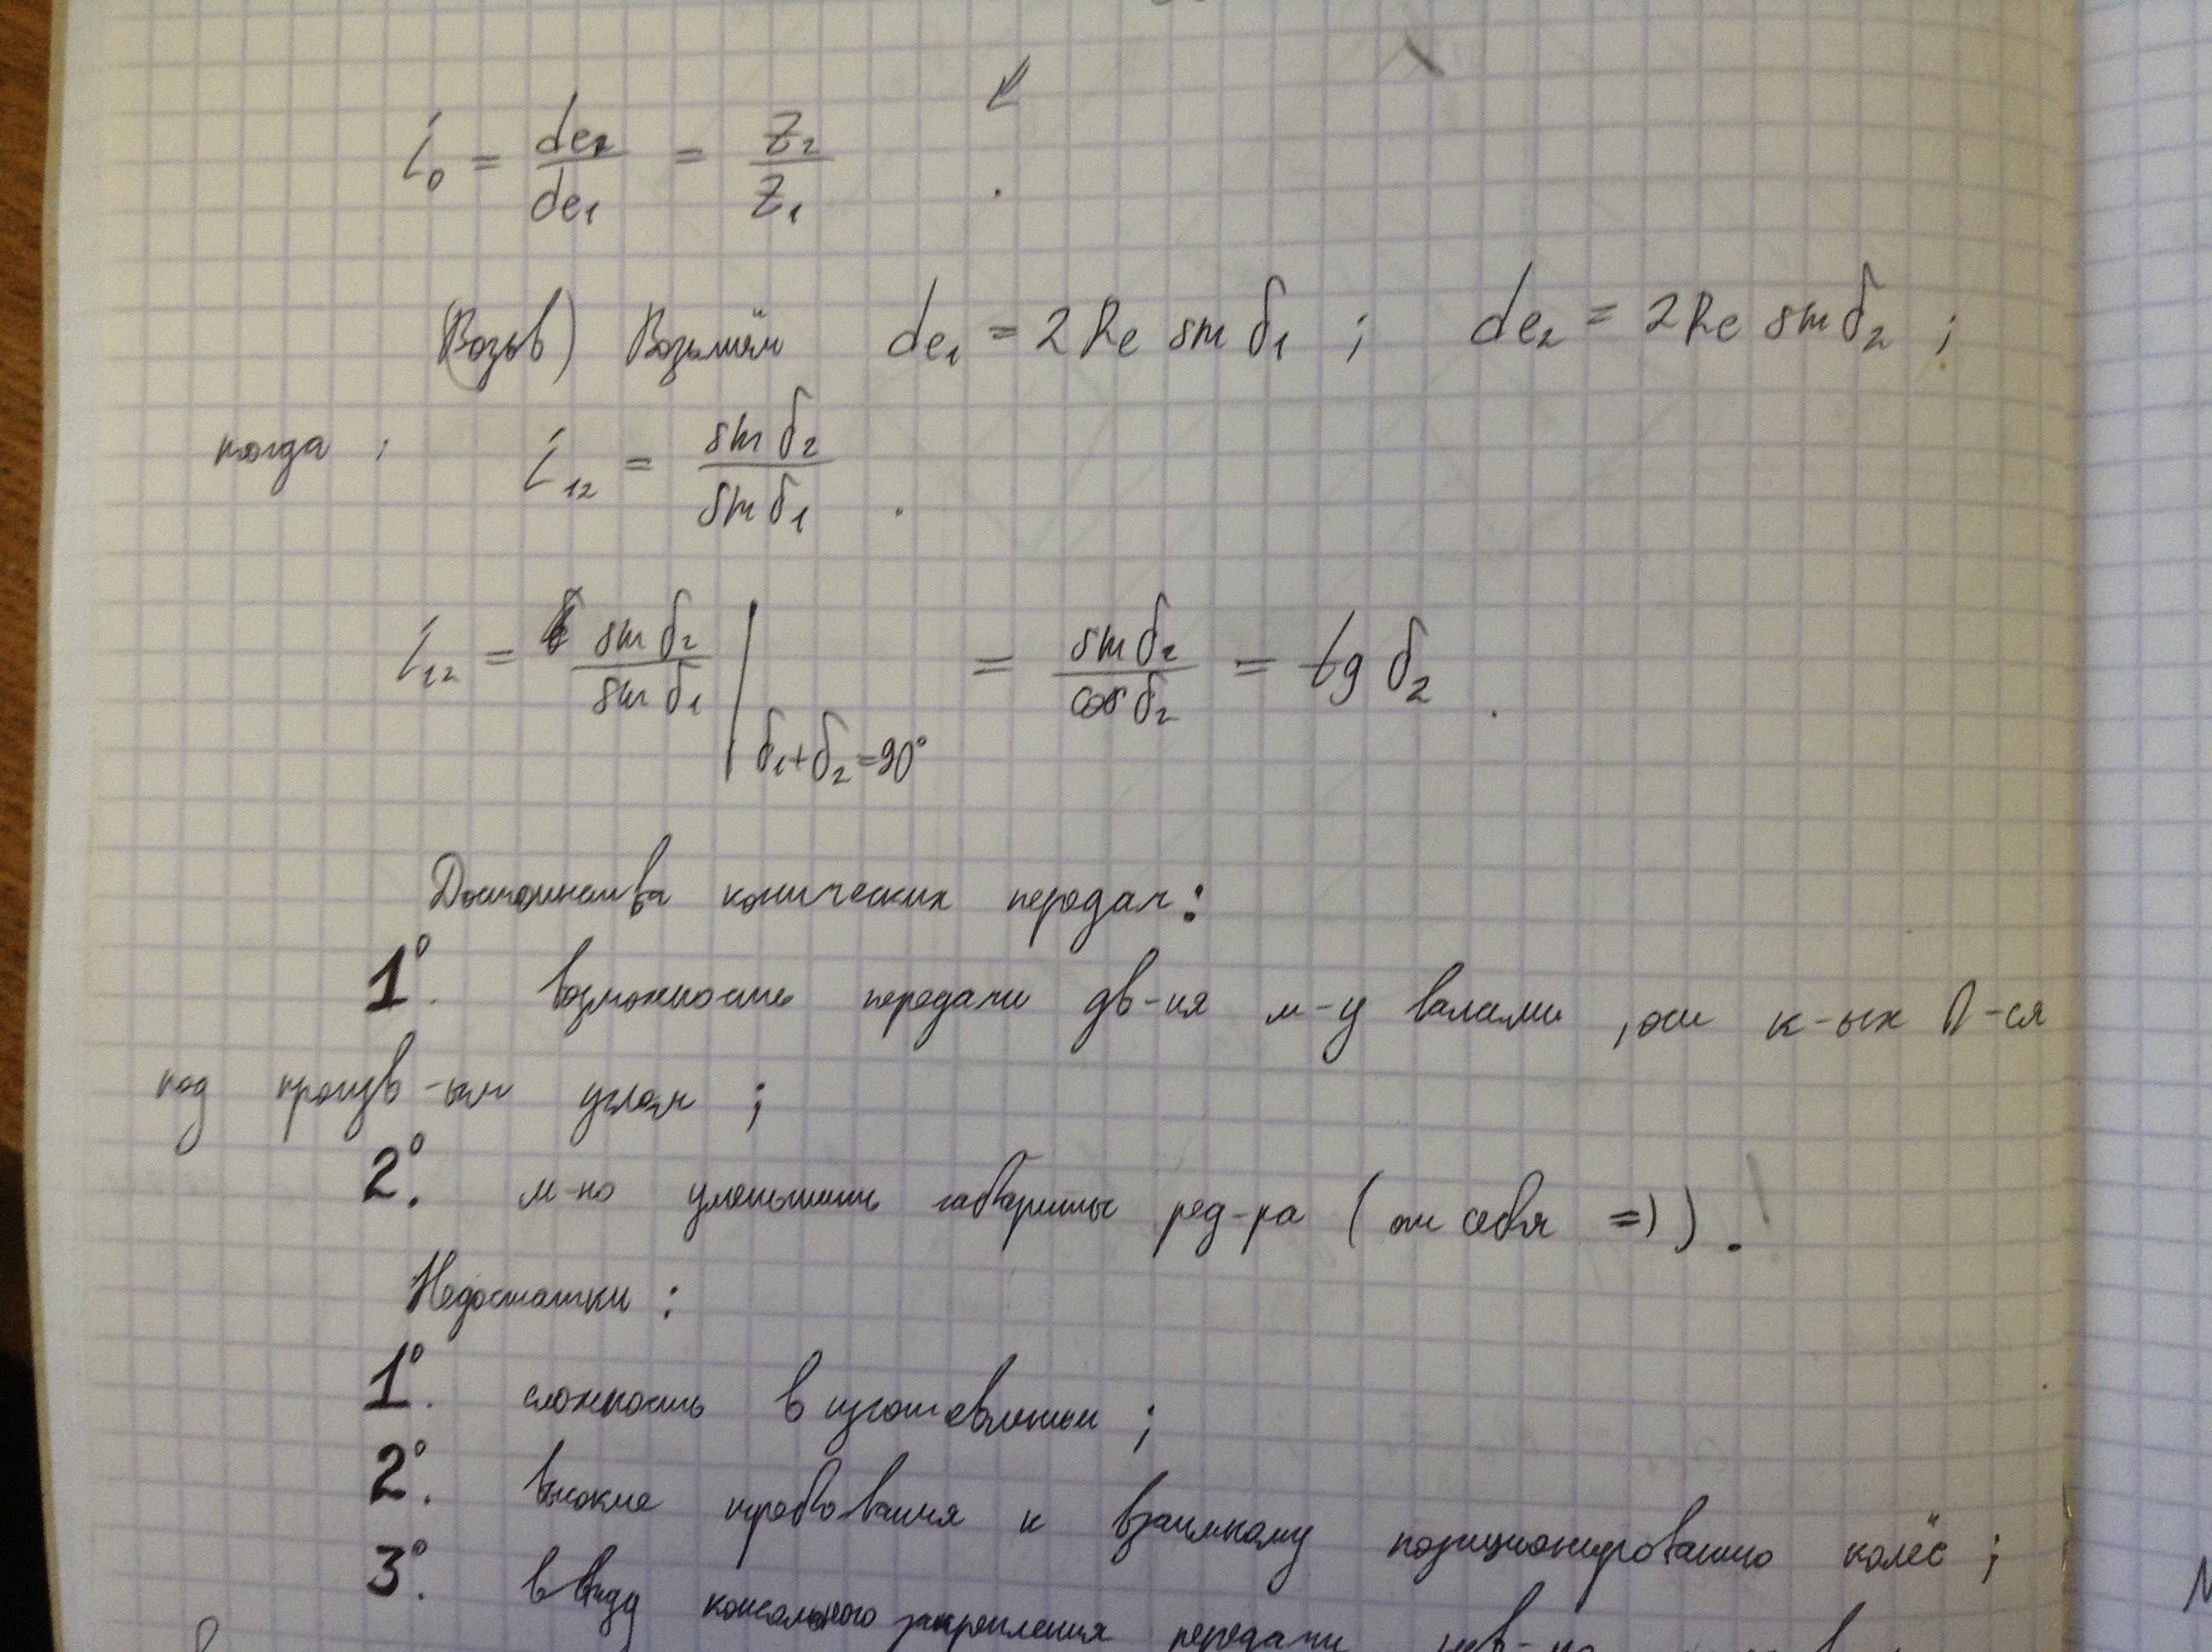 i₀ = de₂/de₁ = z₂/z₁ .
(Возьв) Возьмём de₁ = 2Re sin δ₁ ; de₂ = 2Re sin δ₂ ;
тогда : i₁₂ = sin δ₂/sin δ₁ .
i₁₂ = sin δ₂/sin δ₁ |δ₁+δ₂=90° = sin δ₂/cos δ₂ = tg δ₂ .
Достоинства конических передач:
1°. возможность передачи дв-ия м-у валами, оси к-ых ∩-ся
под произв-ым углом ;
2°. м-но уменьшить габариты ред-ра (от себя =)) . !
Недостатки :
1°. сложность в изготовлении ;
2°. высокие требования к взаимному позиционированию колёс ;
3°. ввиду консольного закрепления передачи